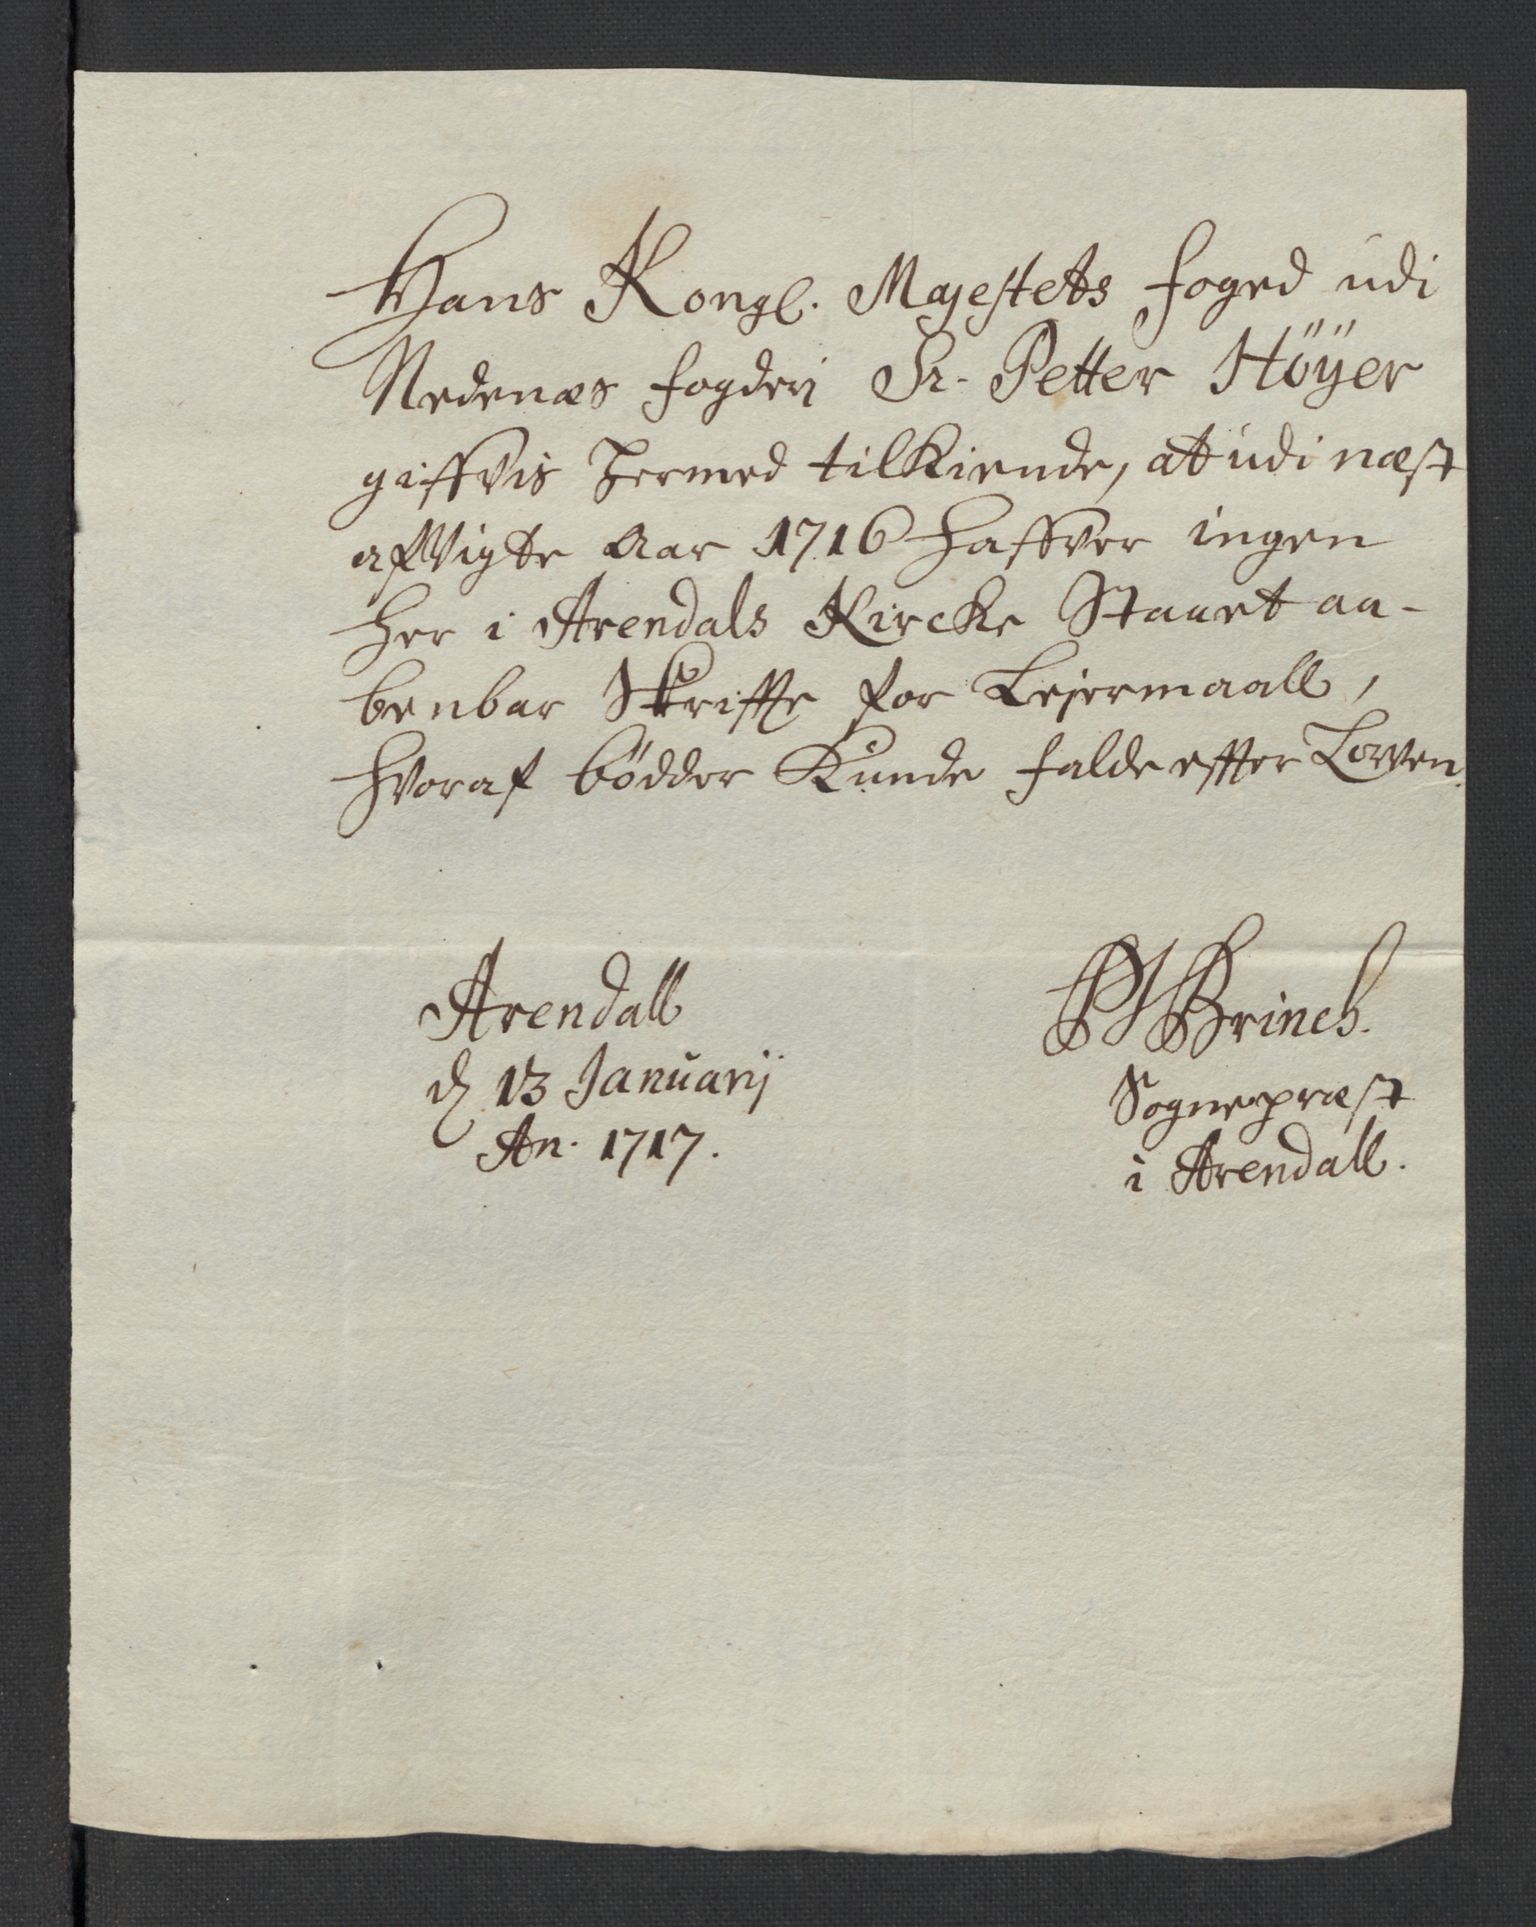 Hans Kongl. Majestets foged udi
Nedenæs fogderj Sr. Petter Höÿer
giffvis hermed tilkiende, at udi næst
afvigte Aar 1716 haffver ingen
her i Arendals Kircke Staaet aa-
benbar Skriffte for Lejermaall,
hvoraf bödder kunde falde effter Lowen.
Arendall
d 13 Januarij
An. 1717.
Brinch.
Sognepræst
i Arendall.